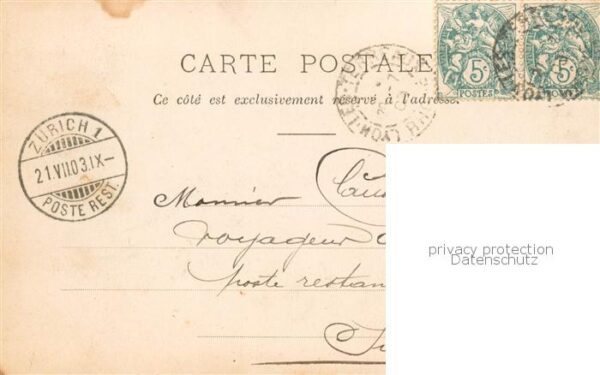 CARTE POSTALE
Ce côté est exclusivement réservé à l'adresse.
5 5
POSTES
ZÜRICH 1
21.VII.03.IX-
POSTE REST.
LYON
Monsieur
voyageur
poste restan
privacy protection
Datenschutz